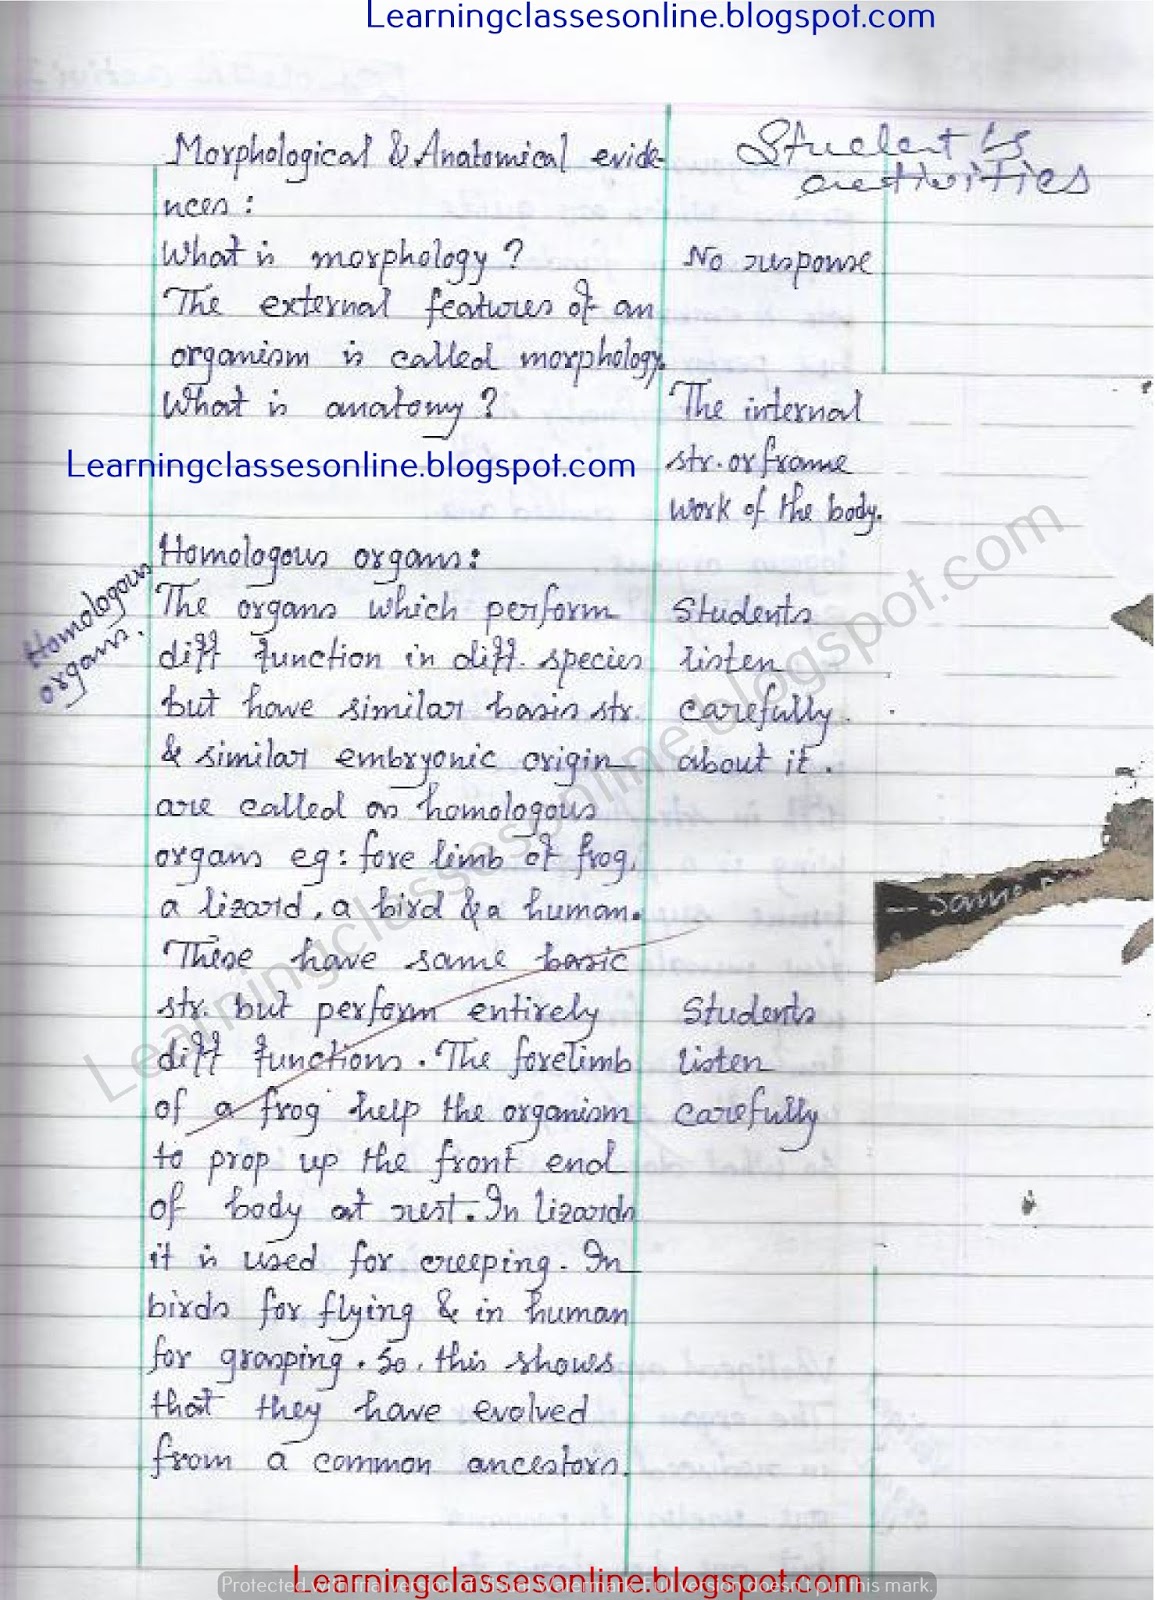 Learningclassesonline.blogspot.com
Student's
activities
Morphological & Anatomical evide-
nces :
What is morphology ?
No response
The external features of an
organism is called morphology.
What is anatomy ?
The internal
str. or frame
work of the body.
Learningclassesonline.blogspot.com
Homologous organs:
Homologous
organs.
The organs which perform
diff function in diff. species
but have similar basis str.
& similar embryonic origin
are called as homologous
organs eg: fore limb of frog,
a lizard, a bird & a human.
Students
listen
carefully.
about it.
— same
These have same basic
str. but perform entirely
diff functions. The forelimb
of a frog help the organism
to prop up the front end
of body at rest. In lizards
it is used for creeping. In
birds for flying & in human
for grasping. So, this shows
that they have evolved
from a common ancestors.
Students
listen
carefully
Learningclassesonline.blogspot.com
Learningclassesonline.blogspot.com
Protected with trial version of Visual Watermark. Full version doesn't put this mark.